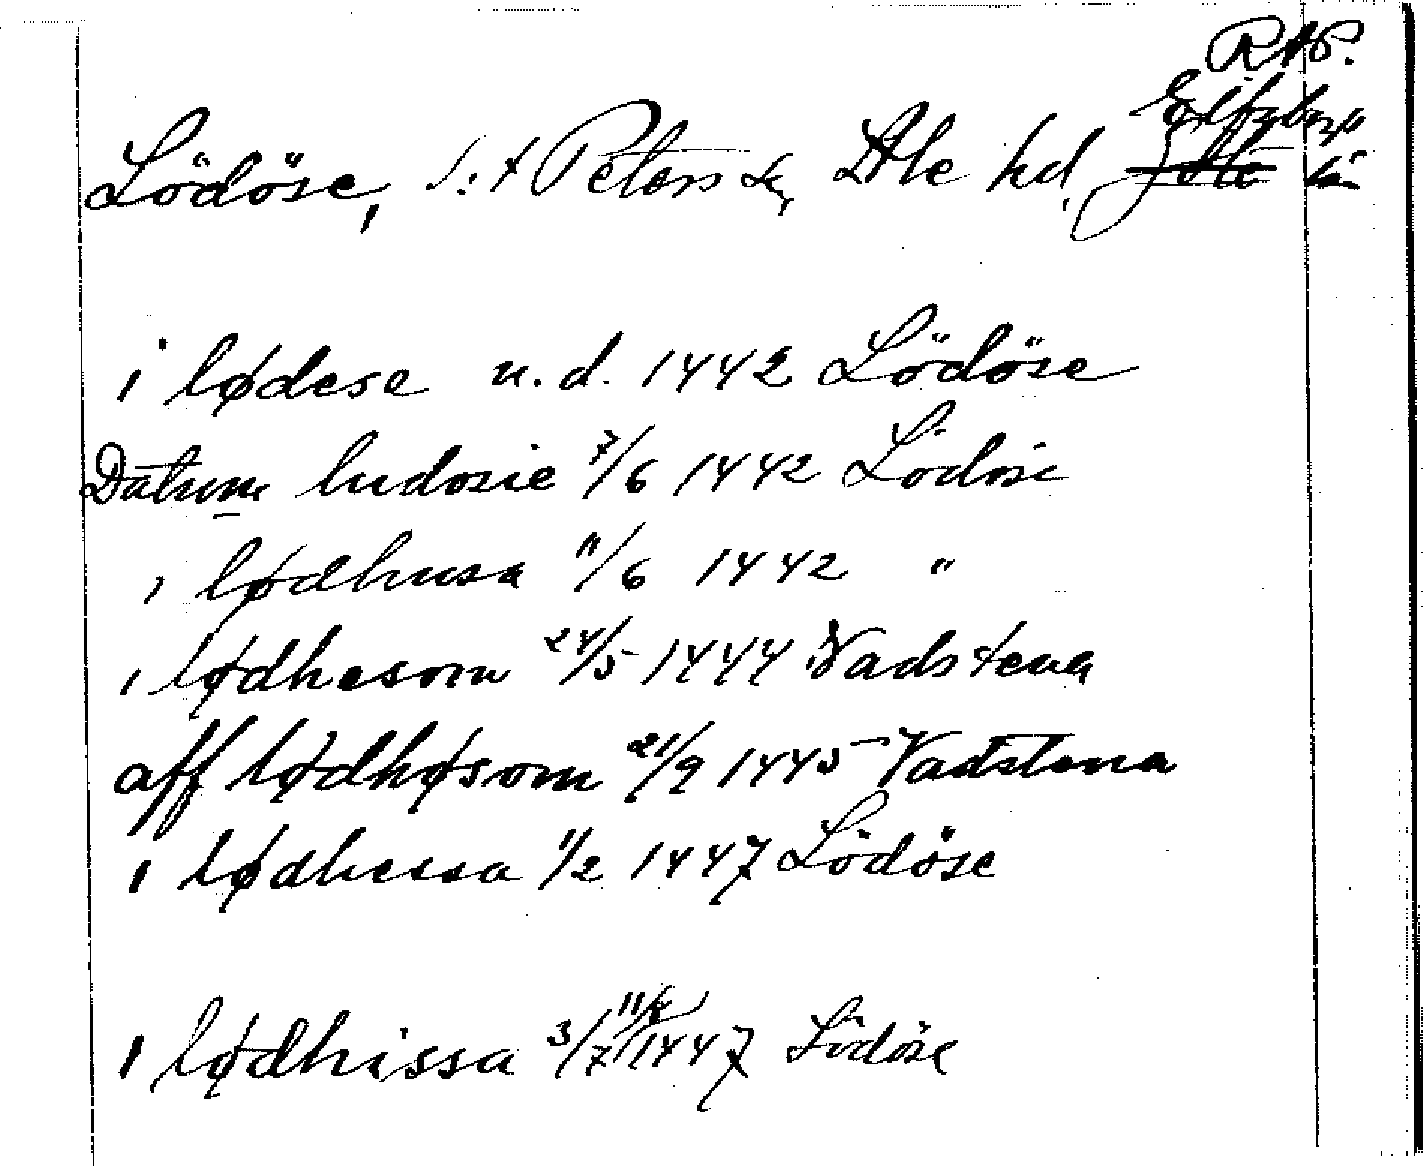 RAP.
Elfsborgs
Lödöse, S:t Peters sn, Ale hd, Göte län
i lødese u.d. 1442 Lödöse
Datum ludosie 7/6 1442 Lödöse
i lødhusa 11/6 1442 "
i lødhesom 24/5 1444 Vadstena
aff lødhøsom 21/9 1445 Vadstena
i lødhessa 1/2 1447 Lödöse
11/6
i lødhissa 3/7 1447 Lödöse